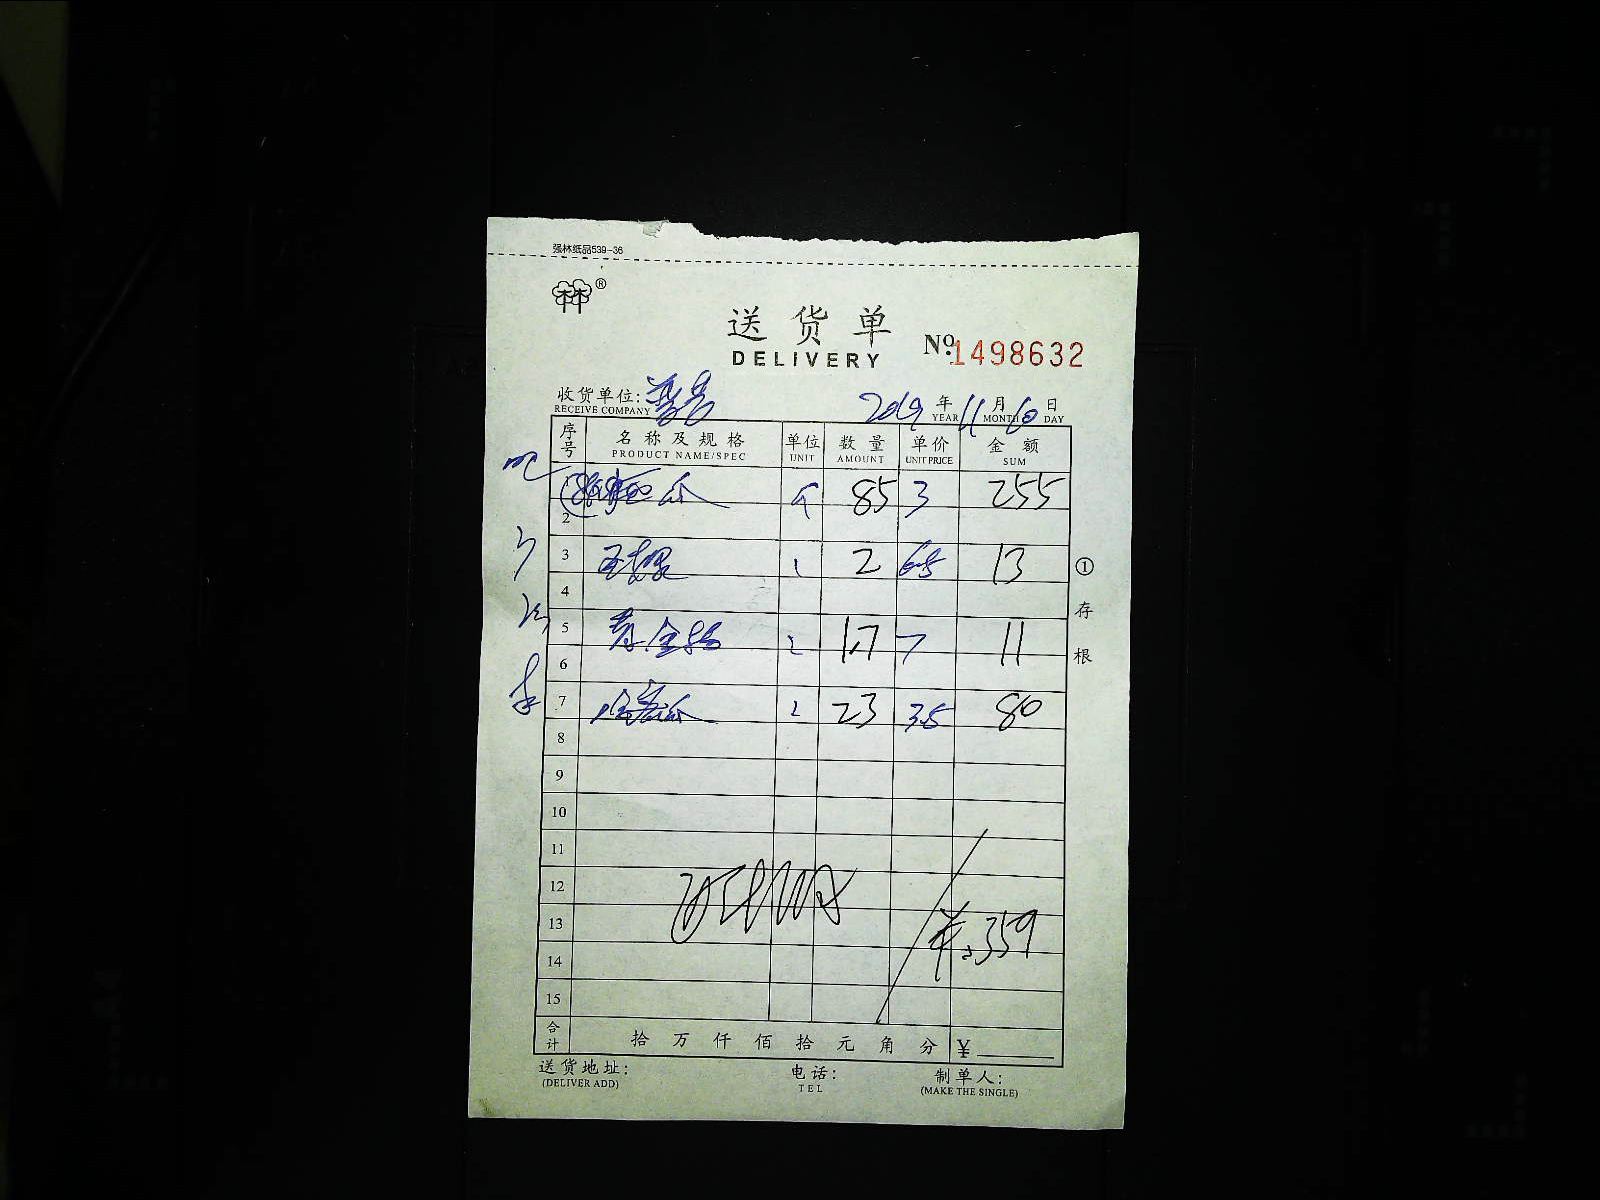 强林纸品539-36
林®
送货单
DELIVERY
№ 1498632
收货单位: 2019 年 11 月 10 日
RECEIVE COMPANY YEAR MONTH DAY
序号 名称及规格 单位 数量 单价 金额
PRODUCT NAME/SPEC UNIT AMOUNT UNIT PRICE SUM
1 个 85 3 255
2
3 2 6.5 13
4
5 1.7 7 11
6
7 哈密瓜 23 3.5 80
8
9
10
11
12
13 ¥:359
14
15
合计 拾 万 仟 佰 拾 元 角 分 ¥
送货地址: 电话: 制单人:
(DELIVER ADD) TEL (MAKE THE SINGLE)
①存根